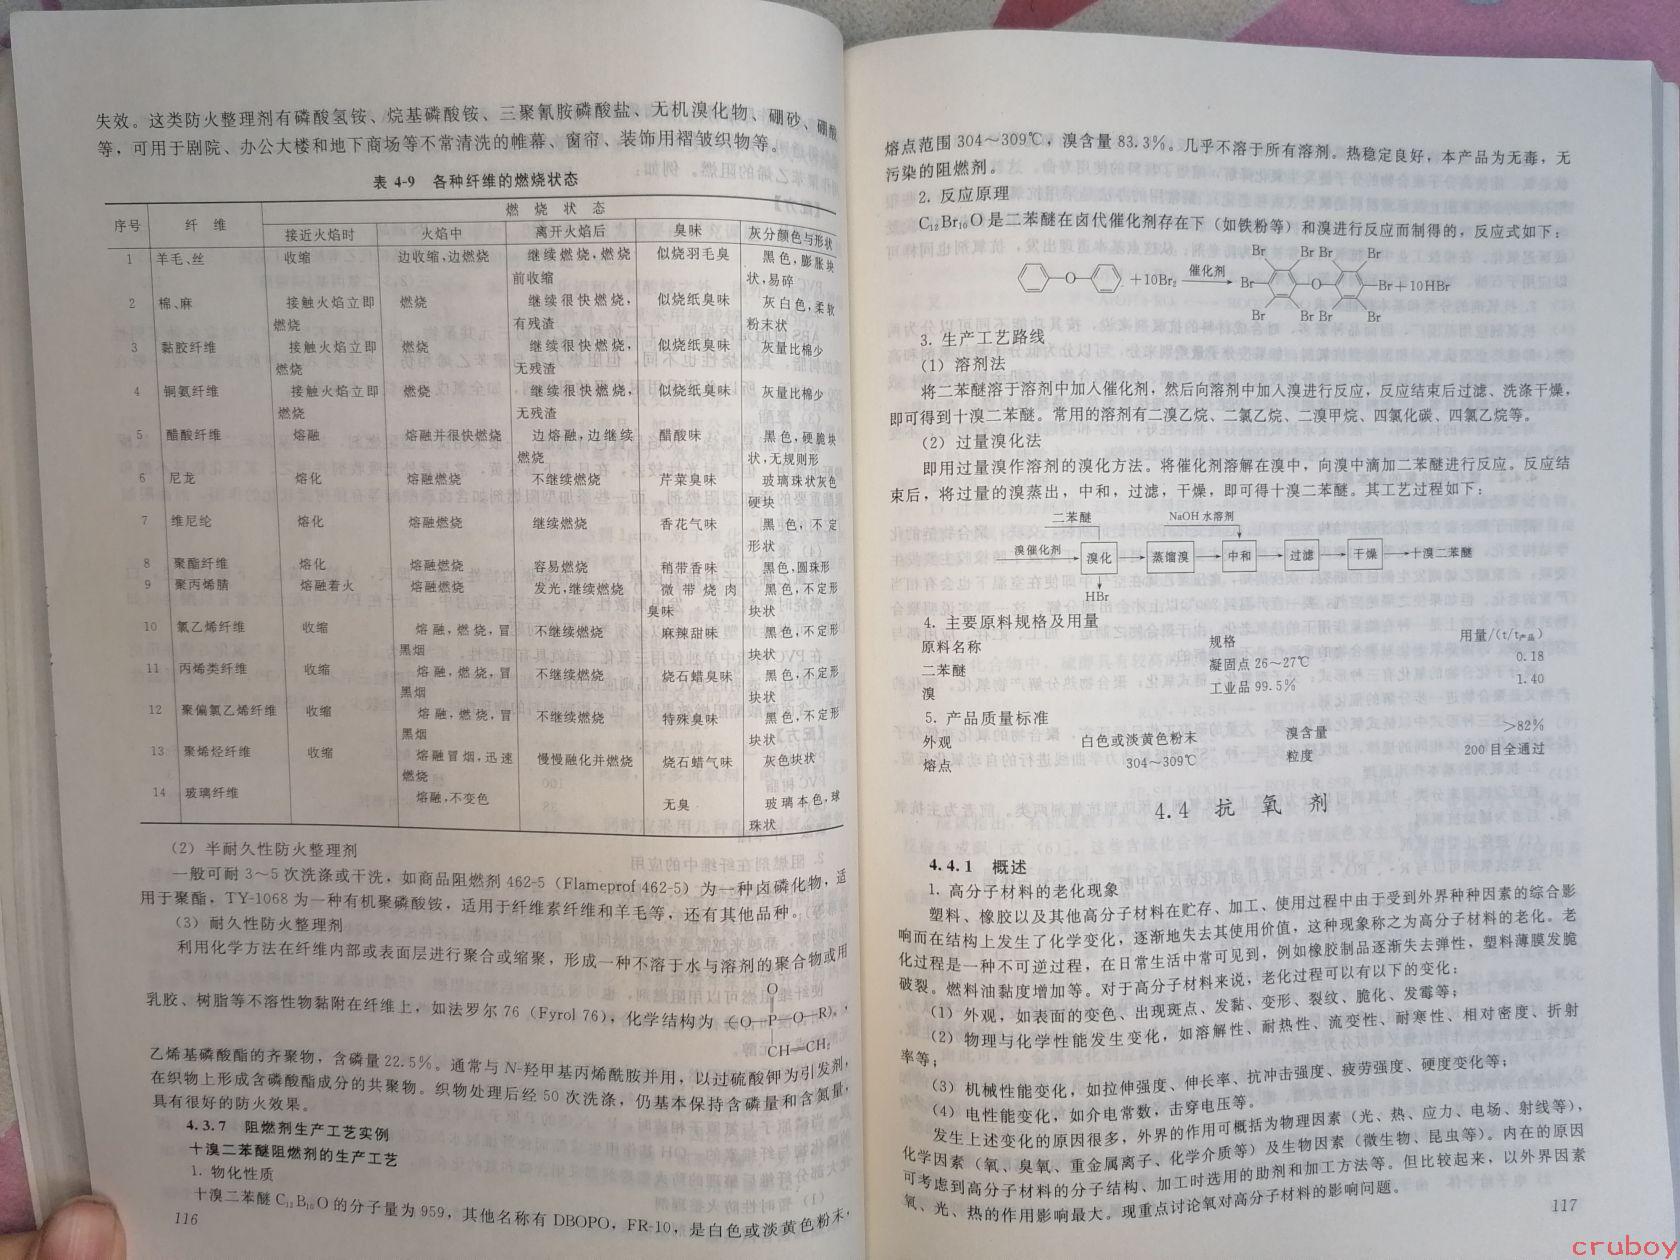 失效。这类防火整理剂有磷酸氢铵、烷基磷酸铵、三聚氰胺磷酸盐、无机溴化物、硼砂、硼酸
等，可用于剧院、办公大楼和地下商场等不常清洗的帷幕、窗帘、装饰用褶皱织物等。
表 4-9 各种纤维的燃烧状态
序号 纤 维 燃 烧 状 态
接近火焰时 火焰中 离开火焰后 臭味 灰分颜色与形状
1 羊毛、丝 收缩 边收缩,边燃烧 继续燃烧,燃烧 似烧羽毛臭 黑色,膨胀块
前收缩 状,易碎
2 棉、麻 接触火焰立即 燃烧 继续很快燃烧, 似烧纸臭味 灰白色,柔软
燃烧 有残渣 粉末状
3 黏胶纤维 接触火焰立即 燃烧 继续很快燃烧, 似烧纸臭味 灰量比棉少
燃烧 无残渣
4 铜氨纤维 接触火焰立即 燃烧 继续很快燃烧, 似烧纸臭味 灰量比棉少
燃烧 无残渣
5 醋酸纤维 熔融 熔融并很快燃烧 边熔融,边继续 醋酸味 黑色,硬脆块
燃烧 状,无规则形
6 尼龙 熔化 熔融燃烧 不继续燃烧 芹菜臭味 玻璃珠状灰色
硬块
7 维尼纶 熔化 熔融燃烧 继续燃烧 香花气味 黑色,不定
形状
8 聚酯纤维 熔化 熔融燃烧 容易燃烧 稍带香味 黑色,圆珠形
9 聚丙烯腈 熔融着火 熔融燃烧 发光,继续燃烧 微带烧肉 黑色,不定形
臭味 块状
10 氯乙烯纤维 收缩 熔融,燃烧,冒 不继续燃烧 麻辣甜味 黑色,不定形
黑烟 块状
11 丙烯类纤维 收缩 熔融,燃烧,冒 不继续燃烧 烧石蜡臭味 黑色,不定形
黑烟 块状
12 聚偏氯乙烯纤维 收缩 熔融,燃烧,冒 不继续燃烧 特殊臭味 黑色,不定形
黑烟 块状
13 聚烯烃纤维 收缩 熔融冒烟,迅速 慢慢融化并燃烧 烧石蜡气味 灰色块状
燃烧
14 玻璃纤维 熔融,不变色 无臭 玻璃本色,球
珠状
（2）半耐久性防火整理剂
一般可耐 3～5 次洗涤或干洗，如商品阻燃剂 462-5（Flameprof 462-5）为一种卤磷化物，适
用于聚酯，TY-1068 为一种有机聚磷酸铵，适用于纤维素纤维和羊毛等，还有其他品种。
（3）耐久性防火整理剂
利用化学方法在纤维内部或表面层进行聚合或缩聚，形成一种不溶于水与溶剂的聚合物或用
O
乳胶、树脂等不溶性物黏附在纤维上，如法罗尔 76（Fyrol 76），化学结构为 (O—P—O—R)ₙ，
CH═CH₂
乙烯基磷酸酯的齐聚物，含磷量 22.5%。通常与 N-羟甲基丙烯酰胺并用，以过硫酸钾为引发剂，
在织物上形成含磷酸酯成分的共聚物。织物处理后经 50 次洗涤，仍基本保持含磷量和含氮量，
具有很好的防火效果。
4.3.7 阻燃剂生产工艺实例
十溴二苯醚阻燃剂的生产工艺
1. 物化性质
十溴二苯醚 C₁₂B₁₀O 的分子量为 959，其他名称有 DBOPO，FR-10，是白色或淡黄色粉末，
116
熔点范围 304～309℃，溴含量 83.3%。几乎不溶于所有溶剂。热稳定良好，本产品为无毒，无
污染的阻燃剂。
2. 反应原理
C₁₂Br₁₀O 是二苯醚在卤代催化剂存在下（如铁粉等）和溴进行反应而制得的，反应式如下：
Br Br Br Br
O +10Br₂ 催化剂 Br O Br+10HBr
Br Br Br Br
3. 生产工艺路线
（1）溶剂法
将二苯醚溶于溶剂中加入催化剂，然后向溶剂中加入溴进行反应，反应结束后过滤、洗涤干燥，
即可得到十溴二苯醚。常用的溶剂有二溴乙烷、二氯乙烷、二溴甲烷、四氯化碳、四氯乙烷等。
（2）过量溴化法
即用过量溴作溶剂的溴化方法。将催化剂溶解在溴中，向溴中滴加二苯醚进行反应。反应结
束后，将过量的溴蒸出，中和，过滤，干燥，即可得十溴二苯醚。其工艺过程如下：
二苯醚 NaOH 水溶剂
溴催化剂 溴化 蒸馏溴 中和 过滤 干燥 十溴二苯醚
HBr
4. 主要原料规格及用量
原料名称 规格 用量/(t/t产品)
二苯醚 凝固点 26～27℃ 0.18
溴 工业品 99.5% 1.40
5. 产品质量标准
外观 白色或淡黄色粉末 溴含量 >82%
熔点 304～309℃ 粒度 200 目全通过
4.4 抗 氧 剂
4.4.1 概述
1. 高分子材料的老化现象
塑料、橡胶以及其他高分子材料在贮存、加工、使用过程中由于受到外界种种因素的综合影
响而在结构上发生了化学变化，逐渐地失去其使用价值，这种现象称之为高分子材料的老化。老
化过程是一种不可逆过程，在日常生活中常可见到，例如橡胶制品逐渐失去弹性，塑料薄膜发脆
破裂。燃料油黏度增加等。对于高分子材料来说，老化过程可以有以下的变化：
（1）外观，如表面的变色、出现斑点、发黏、变形、裂纹、脆化、发霉等；
（2）物理与化学性能发生变化，如溶解性、耐热性、流变性、耐寒性、相对密度、折射
率等；
（3）机械性能变化，如拉伸强度、伸长率、抗冲击强度、疲劳强度、硬度变化等；
（4）电性能变化，如介电常数，击穿电压等。
发生上述变化的原因很多，外界的作用可概括为物理因素（光、热、应力、电场、射线等），
化学因素（氧、臭氧、重金属离子、化学介质等）及生物因素（微生物、昆虫等）。内在的原因
可考虑到高分子材料的分子结构、加工时选用的助剂和加工方法等。但比较起来，以外界因素
氧、光、热的作用影响最大。现重点讨论氧对高分子材料的影响问题。
117
cruboy